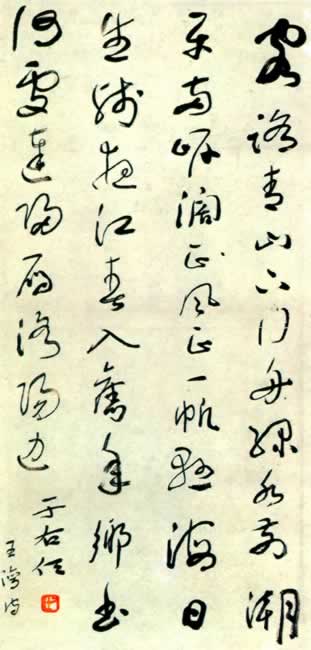 客路青山下行舟綠水前潮
平兩岸濶正風正一帆懸海日
生殘夜江春入舊年鄉書
何處達歸雁洛陽邊
于右任
王灣詩